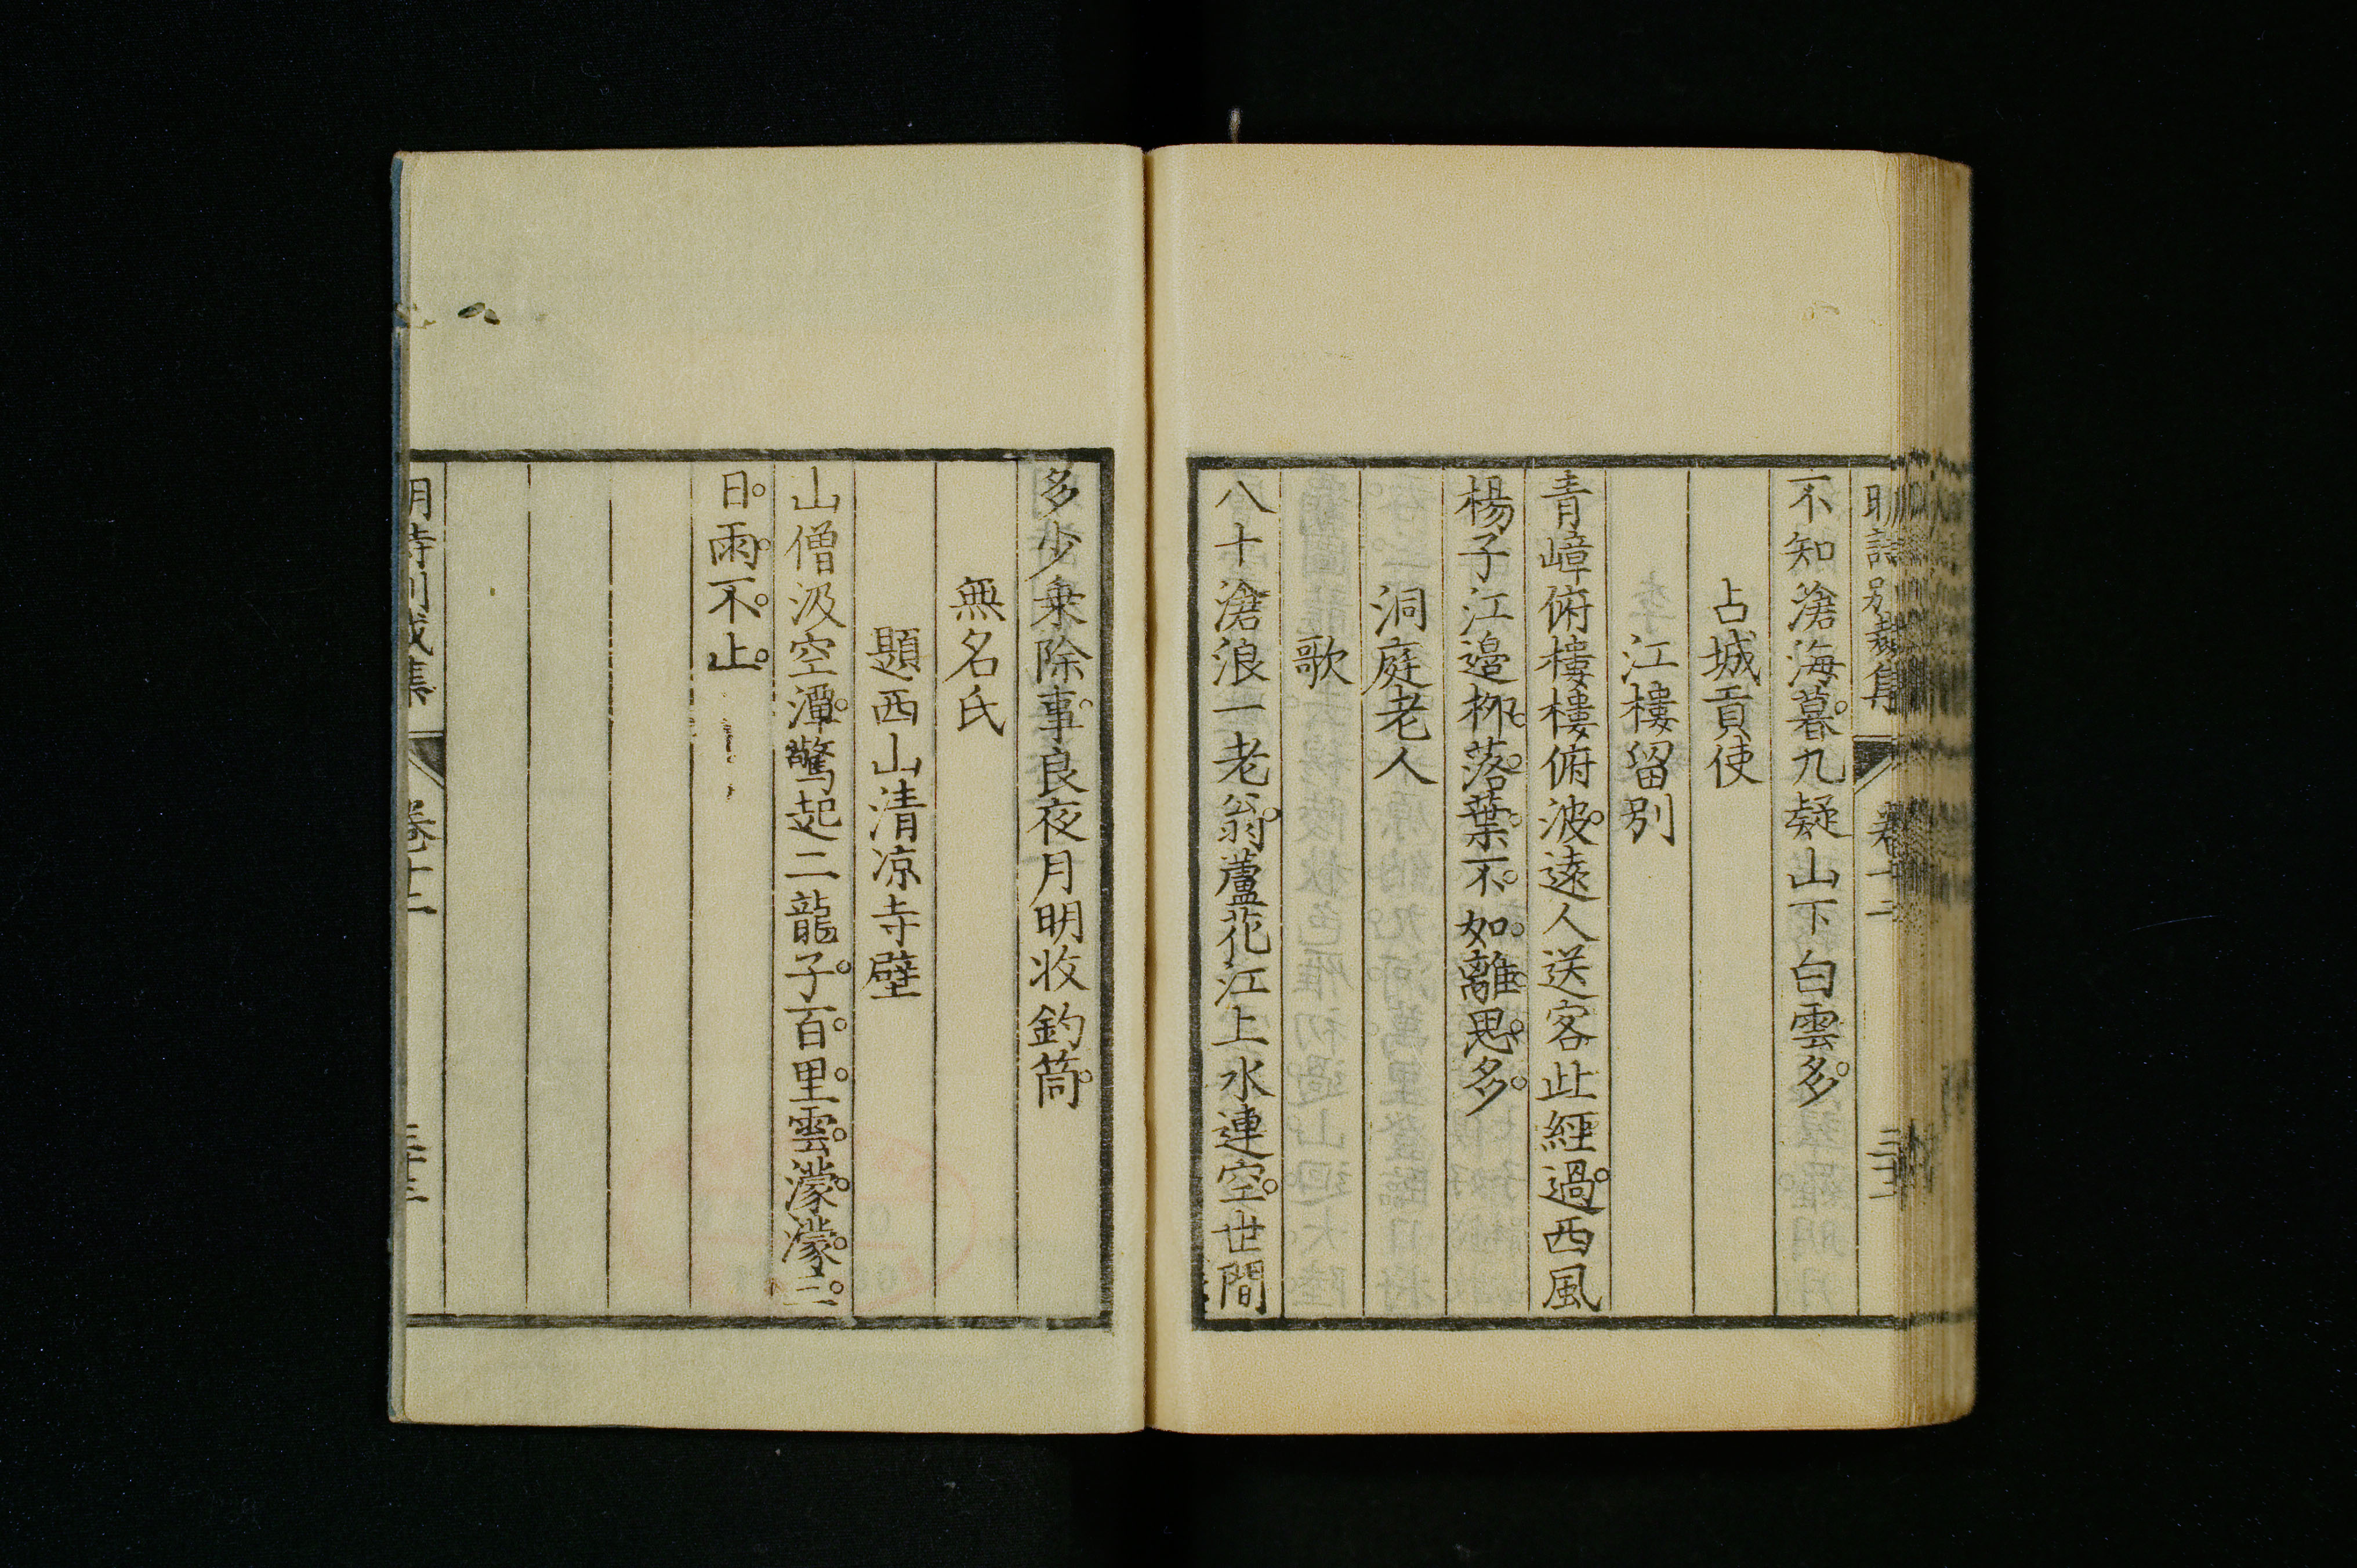 明詩別裁集 卷十二
不知滄海暮。九疑山下白雲多。
占城貢使
江樓留別
青嶂俯樓樓俯波。遠人送客此經過。西風
楊子江邉柳。落。葉。不。如。離。思。多。
洞庭老人
歌
八十滄浪一老翁。蘆花江上水連空。世間
多少乘除事。良夜月明收釣筒。
無名氏
題西山清凉寺壁
山僧汲空潭。驚起二龍子。百。里。雲。濛。濛。三。
日。雨。不。止。
明詩別裁集 卷十二